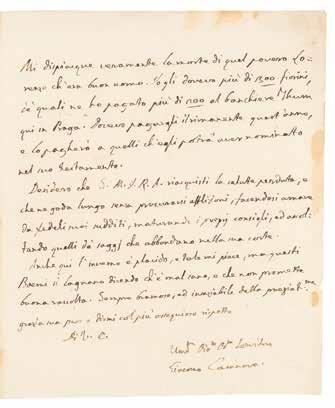 Mi dispiacque veramente la morte di quel povero Lo-
renzo ch'era buon uomo. Io gli doveva più di 1300 fiorini,
de' quali ne ho pagato più di 1200 al banchiere Thum
qui in Praga. Doveva pagargli il rimanente quest'anno,
e lo pagherò a quelli ch'egli potrà aver nominatto
nel suo testamento.
Desidero che S. M. I. R. A. riacquisti la salute perduta, e
che ne goda lungo senza procurarsi afflizioni, facendosi amare
da' fedeli suoi sudditi, maturando i proprj consigli, ed ascol-
tando quelli de' saggj che abbondano nella sua corte.
Anche qui l'inverno è placido, e tale mi piace, ma questi
Boemi si lagnano dicendo ch'è mal sano, e che non promette
buona raccolta. Sempre bramoso, ed insaziabile della
grazia sua passo a dirmi col più ossequioso rispetto
Di V. E.
Giacomo Casanova